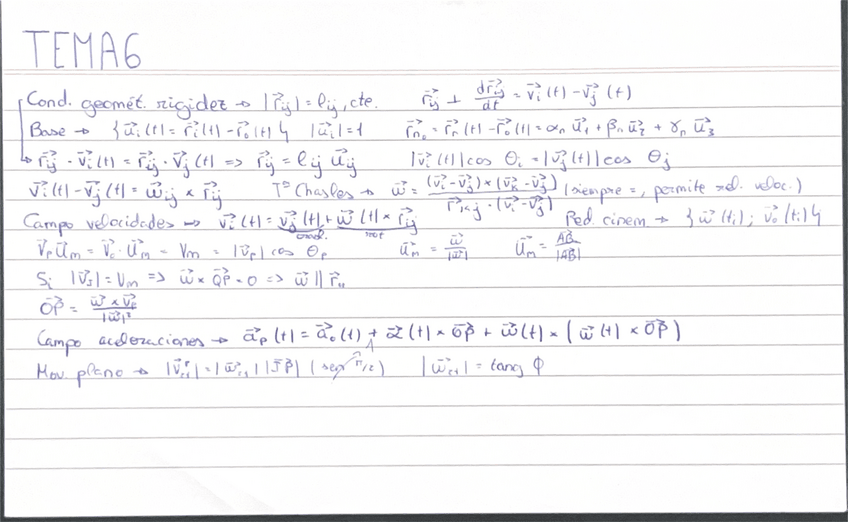 TEMA 6
Cond. geomét. rigidez → |r⃗ij| = lij, cte. r⃗ij ⊥ dr⃗ij/dt = v⃗i(t) - v⃗j(t)
Base → { u⃗i(t) = r⃗i(t) - r⃗0(t) } |u⃗i| = 1 r⃗n0 = r⃗n(t) - r⃗0(t) = αn u⃗1 + βn u⃗2 + γn u⃗3
→ r⃗ij · v⃗i(t) = r⃗ij · v⃗j(t) => r⃗ij = lij u⃗ij |v⃗i(t)| cos θi = |v⃗j(t)| cos θj
v⃗i(t) - v⃗j(t) = ω⃗ij × r⃗ij Tª Chasles → ω⃗ = (v⃗i - v⃗j) × (v⃗k - v⃗j) / r⃗kj · (v⃗i - v⃗j) (siempre =, permite rel. veloc.)
Campo velocidades → v⃗i(t) = v⃗j(t) + ω⃗(t) × r⃗ij Red. cinem → { ω⃗(ti); v⃗0(ti) }
rot
v⃗p u⃗m = v⃗o · u⃗m = vm = |v⃗p| cos θp u⃗m = ω⃗/|ω⃗| u⃗m = AB/|AB|
Si |v⃗J| = vm => ω⃗ × QP = 0 => ω⃗ ||
OP = ω⃗ × v⃗p / |ω⃗|²
Campo aceleraciones → a⃗p(t) = a⃗o(t) + α⃗(t) × OP + ω⃗(t) × (ω⃗(t) × OP)
Mov. plano → |v⃗| = |ω⃗| |JP| (sen π/2) |ω⃗| = tang ϕ